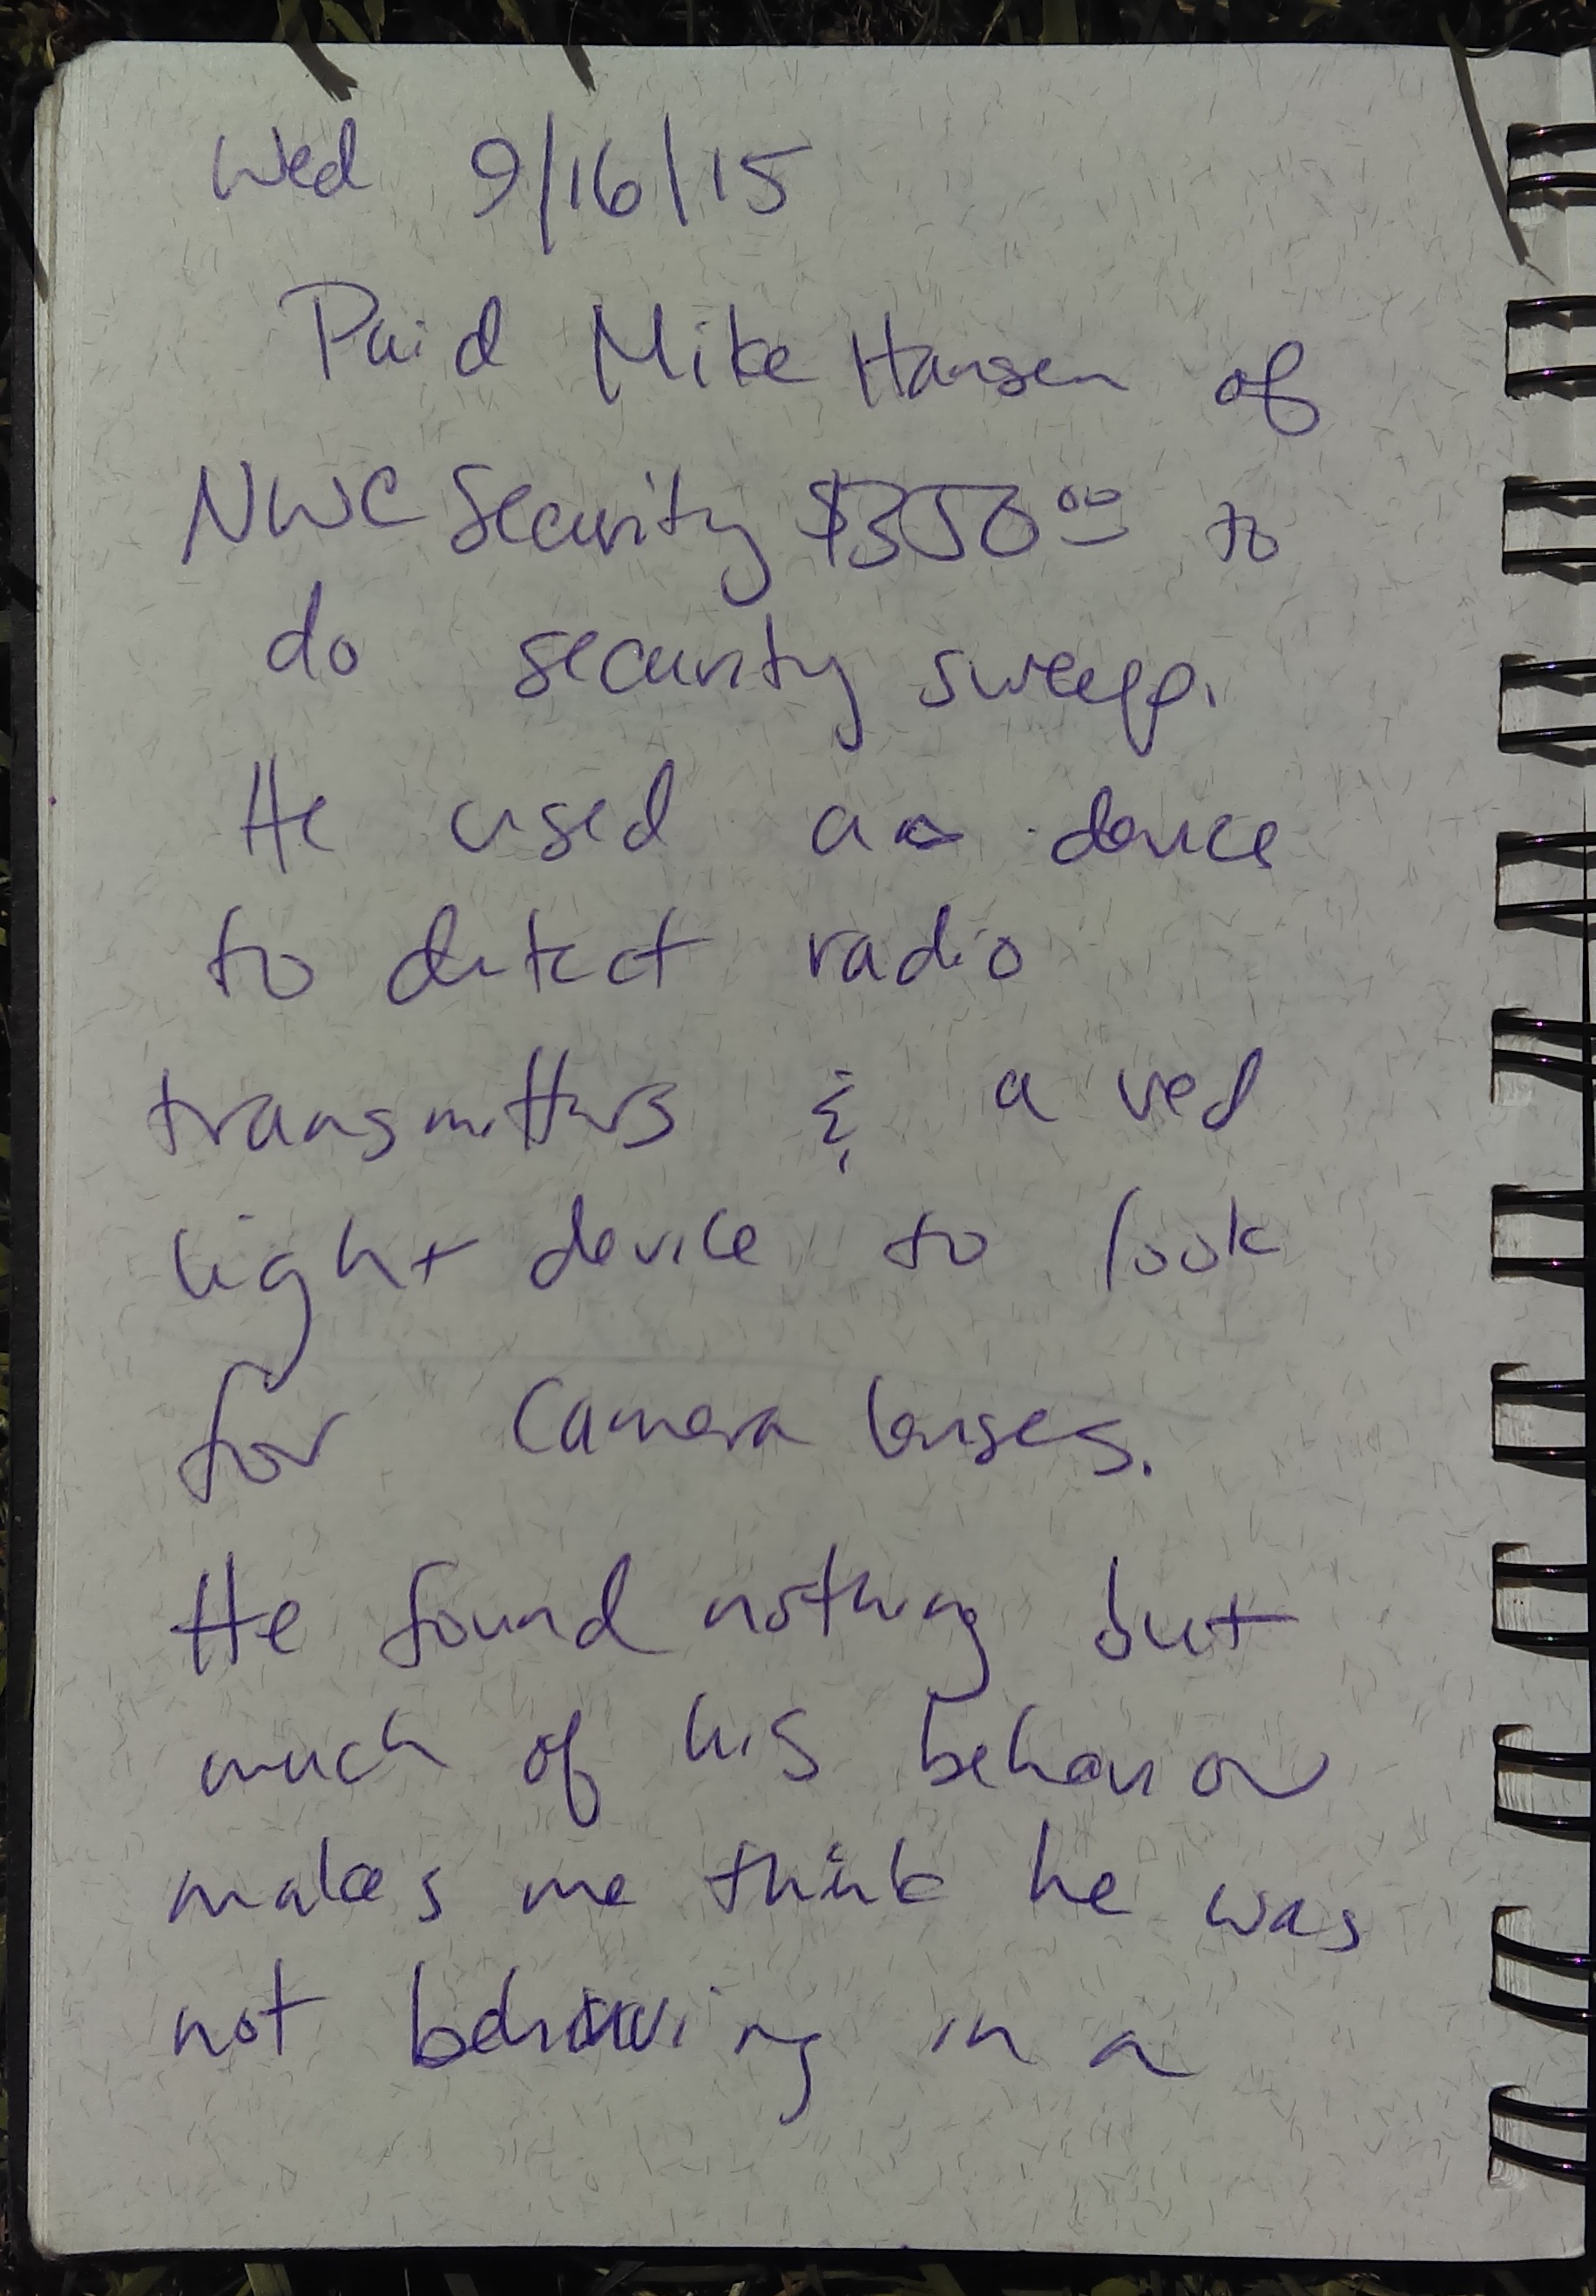 Wed 9/16/15
Paid Mike Hansen of
NWC Security $350.00 to
do security sweep.
He used a device
to detect radio
transmitters & a red
light device to look
for Camera lenses.
He found nothing but
much of his behavior
makes me think he was
not behaving in a